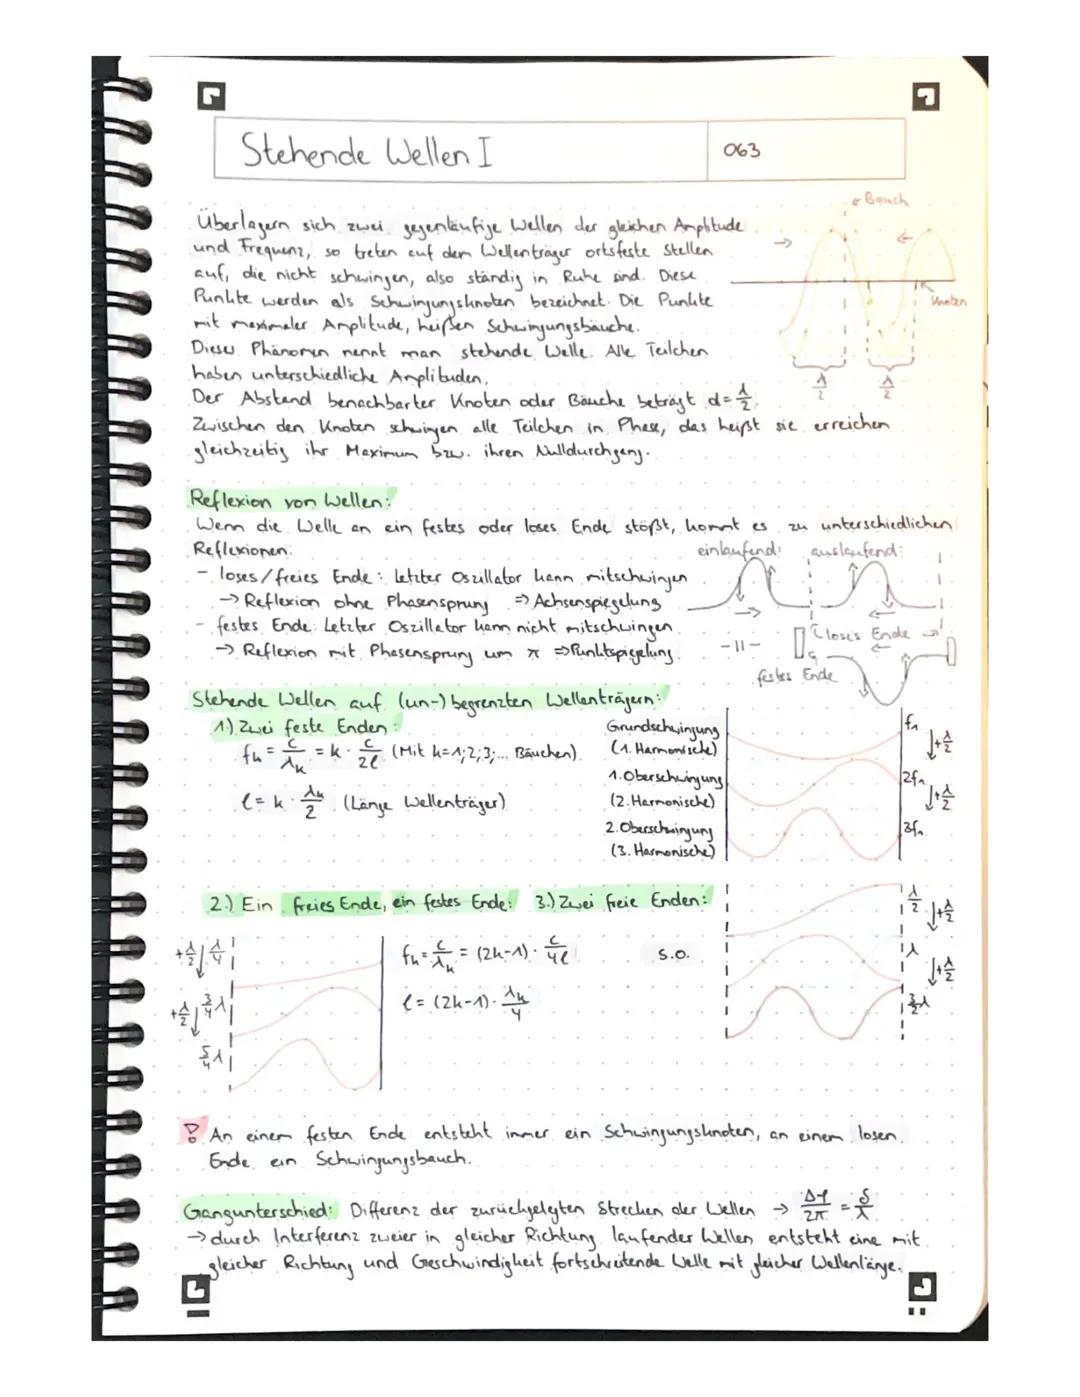 Stehende Wellen I
063
Überlagern sich zwei gegenläufige Wellen der gleichen Amplitude
und Frequenz, so treten auf dem Wellenträger ortsfeste Stellen
auf, die nicht schwingen, also ständig in Ruhe sind. Diese
Punkte werden als Schwingungsknoten bezeichnet. Die Punkte
mit maximaler Amplitude, heißen Schwingungsbäuche.
Dieses Phänomen nennt man stehende Welle. Alle Teilchen
haben unterschiedliche Amplituden.
Der Abstand benachbarter Knoten oder Bäuche beträgt d = λ/2.
Zwischen den Knoten schwingen alle Teilchen in Phase, das heißt sie erreichen
gleichzeitig ihr Maximum bzw. ihren Nulldurchgang.
Bauch
Knoten
λ/2
λ/2
Reflexion von Wellen:
Wenn die Welle an ein festes oder loses Ende stößt, kommt es zu unterschiedlichen
Reflexionen:
- loses/freies Ende: Letzter Oszillator kann mitschwingen
→ Reflexion ohne Phasensprung ⇒ Achsenspiegelung
- festes Ende: Letzter Oszillator kann nicht mitschwingen
→ Reflexion mit Phasensprung um π ⇒ Punktspiegelung
einlaufend: auslaufend:
loses Ende
-11-
festes Ende
Stehende Wellen auf (un-)begrenzten Wellenträgern:
1.) Zwei feste Enden:
fk = c/λk = k · c/2ℓ (Mit k=1;2;3;... Bäuchen)
ℓ = k · λk/2 (Länge Wellenträger)
Grundschwingung
(1. Harmonische)
1. Oberschwingung
(2. Harmonische)
2. Oberschwingung
(3. Harmonische)
f1
+λ/2
2f1
+λ/2
3f1
2.) Ein freies Ende, ein festes Ende: 3.) Zwei freie Enden:
+λ/2 λ/4
+λ/2 3/4 λ
5/4 λ
fk = c/λk = (2k-1) · c/4ℓ
ℓ = (2k-1) · λk/4
s.o.
λ/2 +λ/2
λ +λ/2
3/2 λ
An einem festen Ende entsteht immer ein Schwingungsknoten, an einem losen
Ende ein Schwingungsbauch.
Gangunterschied: Differenz der zurückgelegten Strecken der Wellen → Δφ/2π = δ/λ
→ durch Interferenz zweier in gleicher Richtung laufender Wellen entsteht eine mit
gleicher Richtung und Geschwindigkeit fortschreitende Welle mit gleicher Wellenlänge.